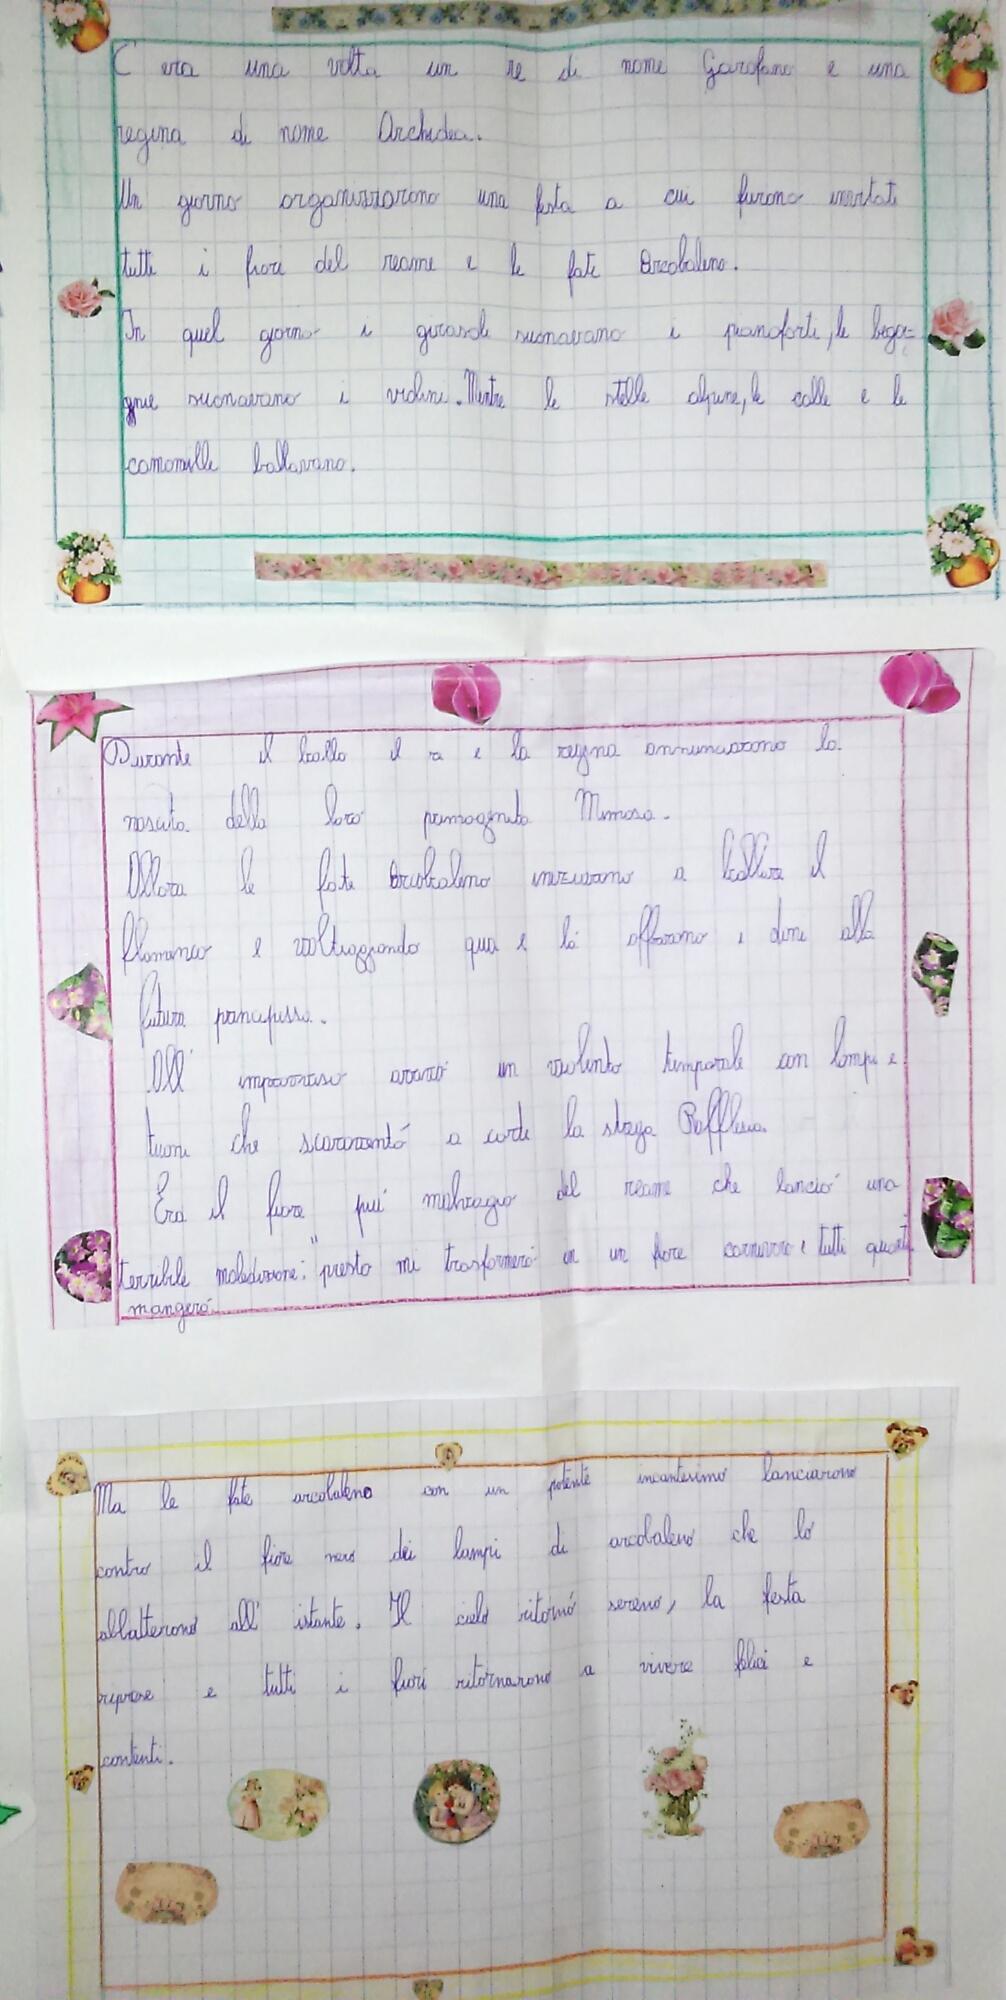 C era una volta un re di nome Garofano e una
regina di nome Orchidea.
Un giorno organizzarono una festa a cui furono invitati
tutti i fiori del reame e le fate Arcobaleno.
In quel giorno i girasoli suonavano i pianoforti, le bego=
gnie suonavano i violini. Mentre le stelle alpine, le calle e le
camomille ballavano.
Durante il ballo il re e la regina annunciarono la
nascita della loro primogenita Mimosa.
Allora le fate Arcobaleno iniziarono a ballare il
flamenco e volteggiando qua e lá offrirono i doni alla
futura principessa.
All' improvviso arrivó un violento temporale con lampi e
tuoni che scaraventó a corte la strega Rafflesia.
Era il fiore piú malvagio del reame che lanció una
terribile maledizione: "presto mi trasformeró in un fiore carnivoro e tutti quanti
mangeró.
Ma le fate arcobaleno con un potente incantesimo lanciarono
contro il fiore nero dei lampi di arcobaleno che lo
abbatterono all' istante. Il cielo ritornó sereno, la festa
riprese e tutti i fiori ritornarono a vivere felici e
contenti.